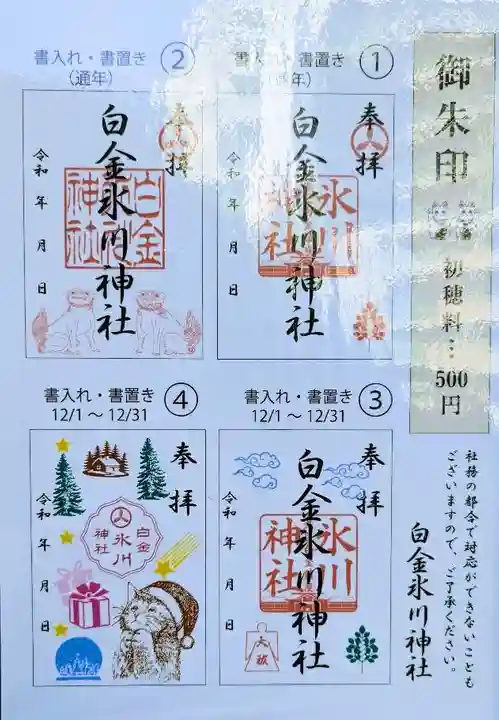 御朱印
初穂料…
500円
①
書入れ・書置き
奉拝
白金氷川神社
氷川
神社
令和 年 月 日
②
書入れ・書置き
(通年)
奉拝
白金氷川神社
白金
神社
令和 年 月 日
③
書入れ・書置き
12/1 〜 12/31
奉拝
白金氷川神社
氷川
神社
大祓
令和 年 月 日
④
書入れ・書置き
12/1 〜 12/31
奉拝
白金
氷川
神社
令和 年 月 日
社務の都合で対応ができないことも
ございますので、ご了承ください。
白金氷川神社